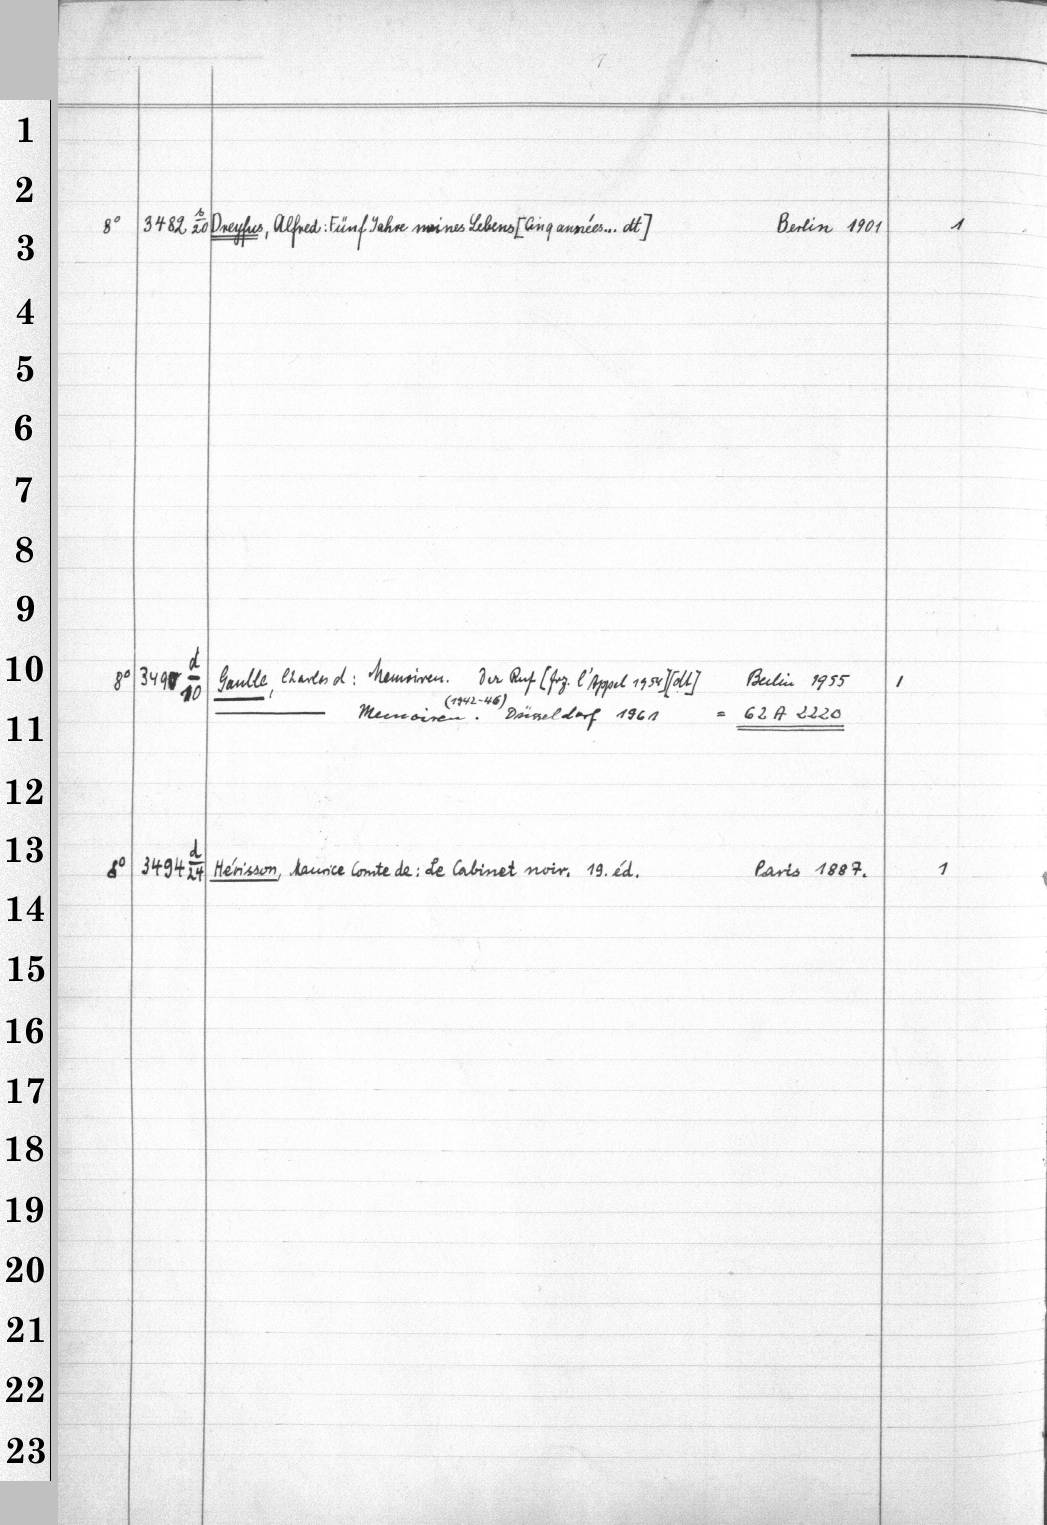 1
2
8° 3482 s/20 Dreyfus, Alfred: Fünf Jahre meines Lebens [Cinq années... dt] Berlin 1901 1
3
4
5
6
7
8
9
10 8° 3490 d/10 Gaulle, Charles d: Memoiren. Der Ruf [frz. l'Appel 1954][dt] Berlin 1955 1
Memoiren (1942-46). Düsseldorf 1961 = 62 A 2220
11
12
13 8° 3494 d/24 Hérisson, Maurice Comte de: Le Cabinet noir. 19. éd. Paris 1887. 1
14
15
16
17
18
19
20
21
22
23